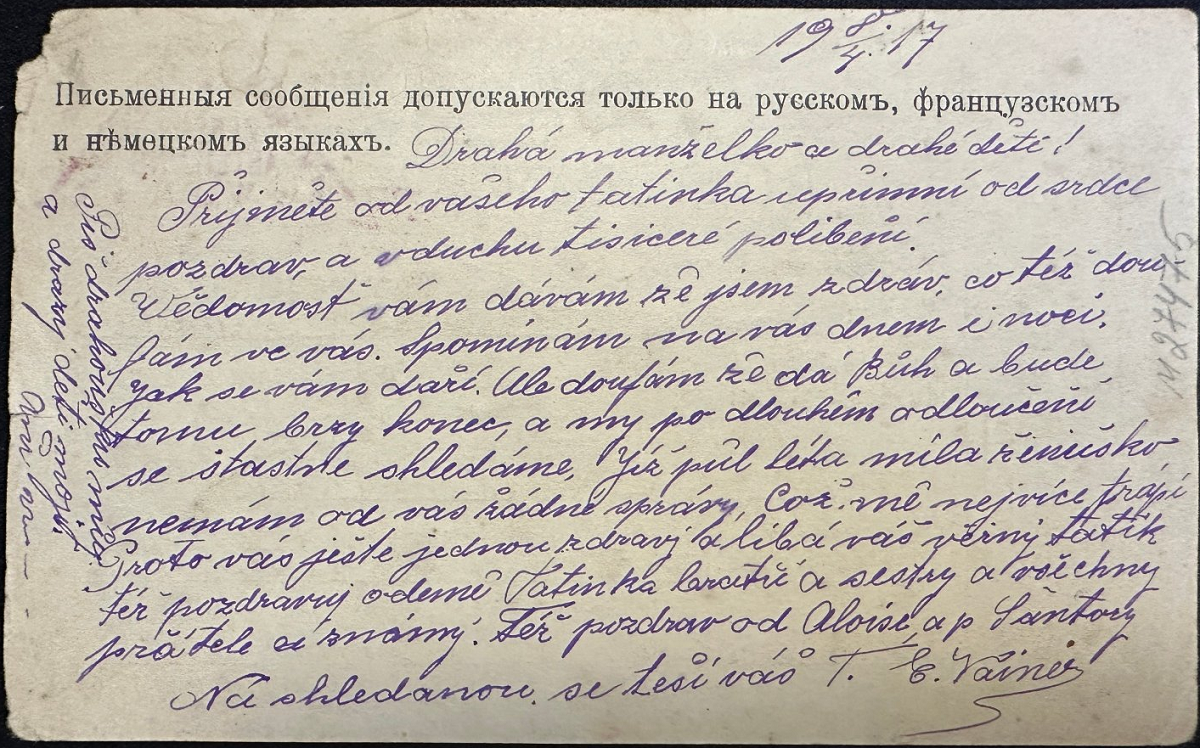 19 8./4. 17
Письменныя сообщенія допускаются только на русскомъ, французскомъ
и нѣмецкомъ языкахъ. Drahá manželko a drahé děti!
Přijměte od vašeho tatinka upřimní od srdce
pozdrav, a vduchu tisiceré polibení.
Vědomosť vám dávám žê jsem zdráv, co též dou
fám ve vás. Spominám na vás dnem i noci,
Jak se vám daří. Ale doufám žê dá Bůh a bude
tomu brzy konec, a my po dlouhém odloučení
se štastně shledáme, Již půl léta milá ženuško
nemám od vás žádné správy, Což mě nejvíce trápí
Proto vás ješte jednou zdraví a líbá váš věrný tatík
též pozdravuj odemě Tatinka bratří a sestry a všechny
přátele a známý. Též pozdrav od Aloise, a p Šantory
Na shledanou se teší váš T. E. Vainer
Piš drahouš
a brzy děti moji
N27475